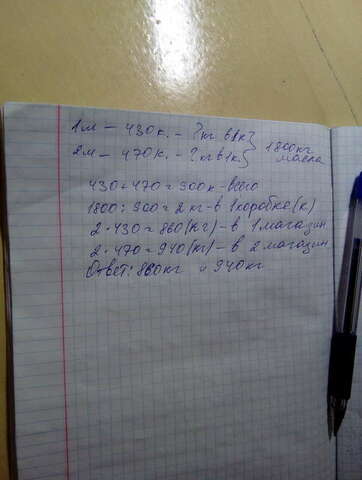 1м - 430к. - ?кг в 1к } 1800кг
2м - 470к. - ?кг в 1к } масла
430+470=900к - всего
1800:900=2кг - в 1 коробке(к)
2·430=860(кг) - в 1 магазин
2·470=940(кг) - в 2 магазин
Ответ: 860кг и 940кг